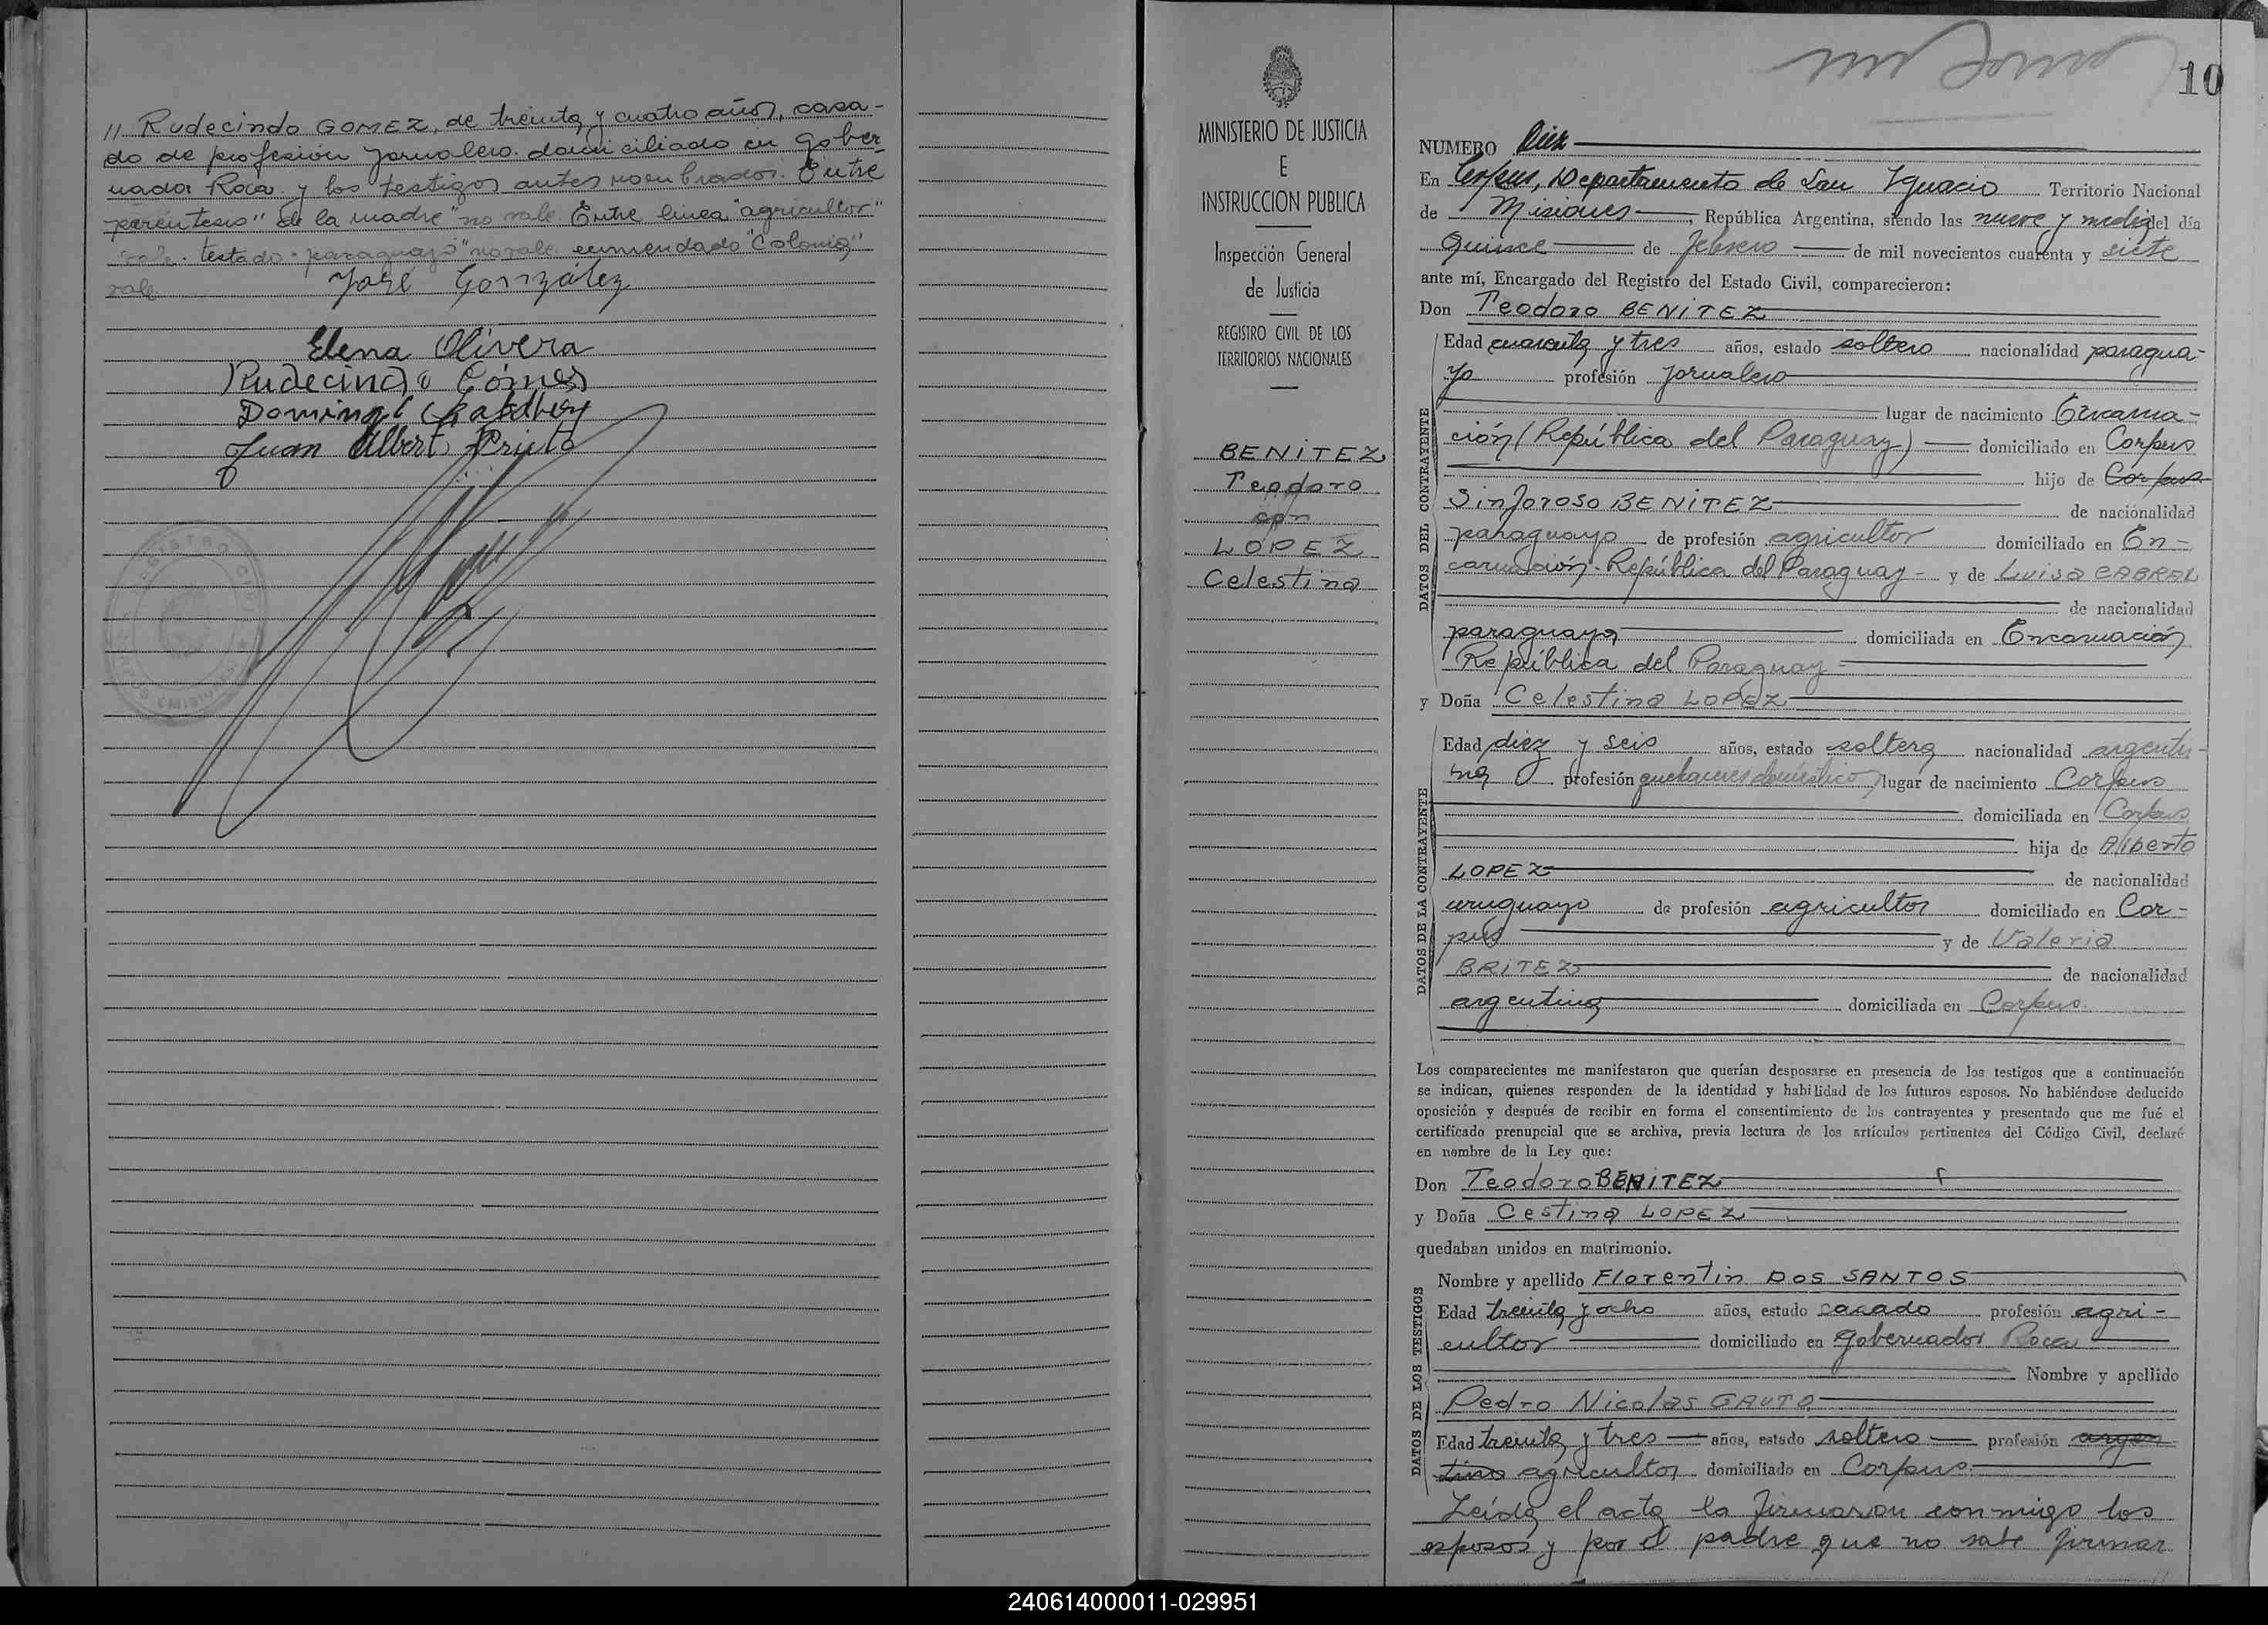 // Rudecindo GOMEZ, de treinta y cuatro años, casa-
do de profesión jornalero domiciliado en Gober-
nador Roca y los testigos antes nombrados. Entre
parentesis "de la madre" no vale. Entre linea "agricultor"
vale. testado "paraguayo" no vale. enmendado "Colonia"
vale.
José Gonzalez
Elena Olivera
Rudecindo Gómes
Juan Albert Prieto
REGISTRO CIVIL
MINISTERIO DE JUSTICIA
E
INSTRUCCION PUBLICA
Inspección General
de Justicia
REGISTRO CIVIL DE LOS
TERRITORIOS NACIONALES
BENITEZ
Teodoro
con
LOPEZ
Celestina
10
NUMERO Diez
En Corpus, Departamento de San Ygnacio Territorio Nacional
de Misiones, República Argentina, siendo las nueve y media del día
Quince de febrero de mil novecientos cuarenta y siete
ante mí, Encargado del Registro del Estado Civil, comparecieron:
Don Teodoro BENITEZ
DATOS DEL CONTRAYENTE
Edad cuarenta y tres años, estado soltero nacionalidad paragua-
yo profesión jornalero
lugar de nacimiento Encarna-
ción (República del Paraguay) domiciliado en Corpus
hijo de Corpus
Sinforoso BENITEZ de nacionalidad
paraguayo de profesión agricultor domiciliado en En-
carnación. República del Paraguay - y de Luisa CABRAL
de nacionalidad
paraguaya domiciliada en Encarnación
República del Paraguay
y Doña Celestina LOPEZ
DATOS DE LA CONTRAYENTE
Edad diez y seis años, estado soltera nacionalidad argenti-
na profesión quehaceres domésticos lugar de nacimiento Corpus
domiciliada en Corpus
hija de Aliberto
LOPEZ de nacionalidad
uruguayo de profesión agricultor domiciliado en Cor-
pus y de Valeria
BRITEZ de nacionalidad
argentina domiciliada en Corpus.
Los comparecientes me manifestaron que querían desposarse en presencia de los testigos que a continuación
se indican, quienes responden de la identidad y habilidad de los futuros esposos. No habiéndose deducido
oposición y después de recibir en forma el consentimiento de los contrayentes y presentado que me fué el
certificado prenupcial que se archiva, previa lectura de los artículos pertinentes del Código Civil, declaré
en nombre de la Ley que:
Don Teodoro BENITEZ
y Doña Cestina LOPEZ
quedaban unidos en matrimonio.
DATOS DE LOS TESTIGOS
Nombre y apellido Florentin DOS SANTOS
Edad treinta y ocho años, estado casado profesión agri-
cultor domiciliado en Gobernador Roca
Nombre y apellido
Pedro Nicolas GAUTO
Edad treinta y tres años, estado soltero profesión argen
tino agricultor domiciliado en Corpus.
Leida el acta la firmaron conmigo los
esposos y por el padre que no sabe firmar
240614000011-029951